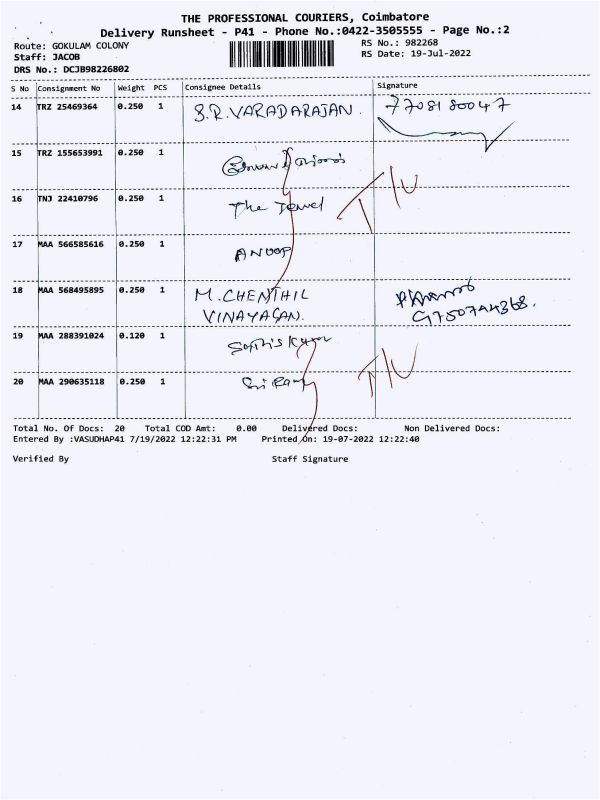 THE PROFESSIONAL COURIERS, Coimbatore
Delivery Runsheet - P41 - Phone No.:0422-3505555 - Page No.:2
Route: GOKULAM COLONY
RS No.: 982268
Staff: JACOB
RS Date: 19-Jul-2022
DRS No.: DCJB98226802
S No Consignment No Weight PCS Consignee Details Signature
14 TRZ 25469364 0.250 1 S.R. VARADARAJAN. 7708180047
15 TRZ 155653991 0.250 1
16 TNJ 22410796 0.250 1 The Jewel T/U
17 MAA 566585616 0.250 1 ANOOP
18 MAA 568495895 0.250 1 M. CHENTHIL
VINAYAGAN. 9750744368.
19 MAA 288391024 0.120 1
20 MAA 290635118 0.250 1 Sri Ram T/U
Total No. Of Docs: 20 Total COD Amt: 0.00 Delivered Docs: Non Delivered Docs:
Entered By :VASUDHAP41 7/19/2022 12:22:31 PM Printed On: 19-07-2022 12:22:40
Verified By Staff Signature